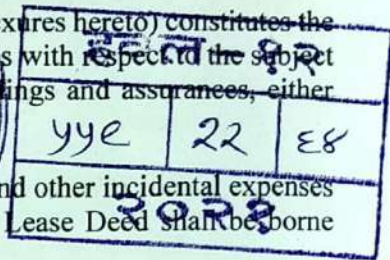 exures hereto) constitutes the
हवल - १२
s with respect to the subject
ings and assurances, either
५५९ २२ ६४
nd other incidental expenses
Lease Deed shall be borne